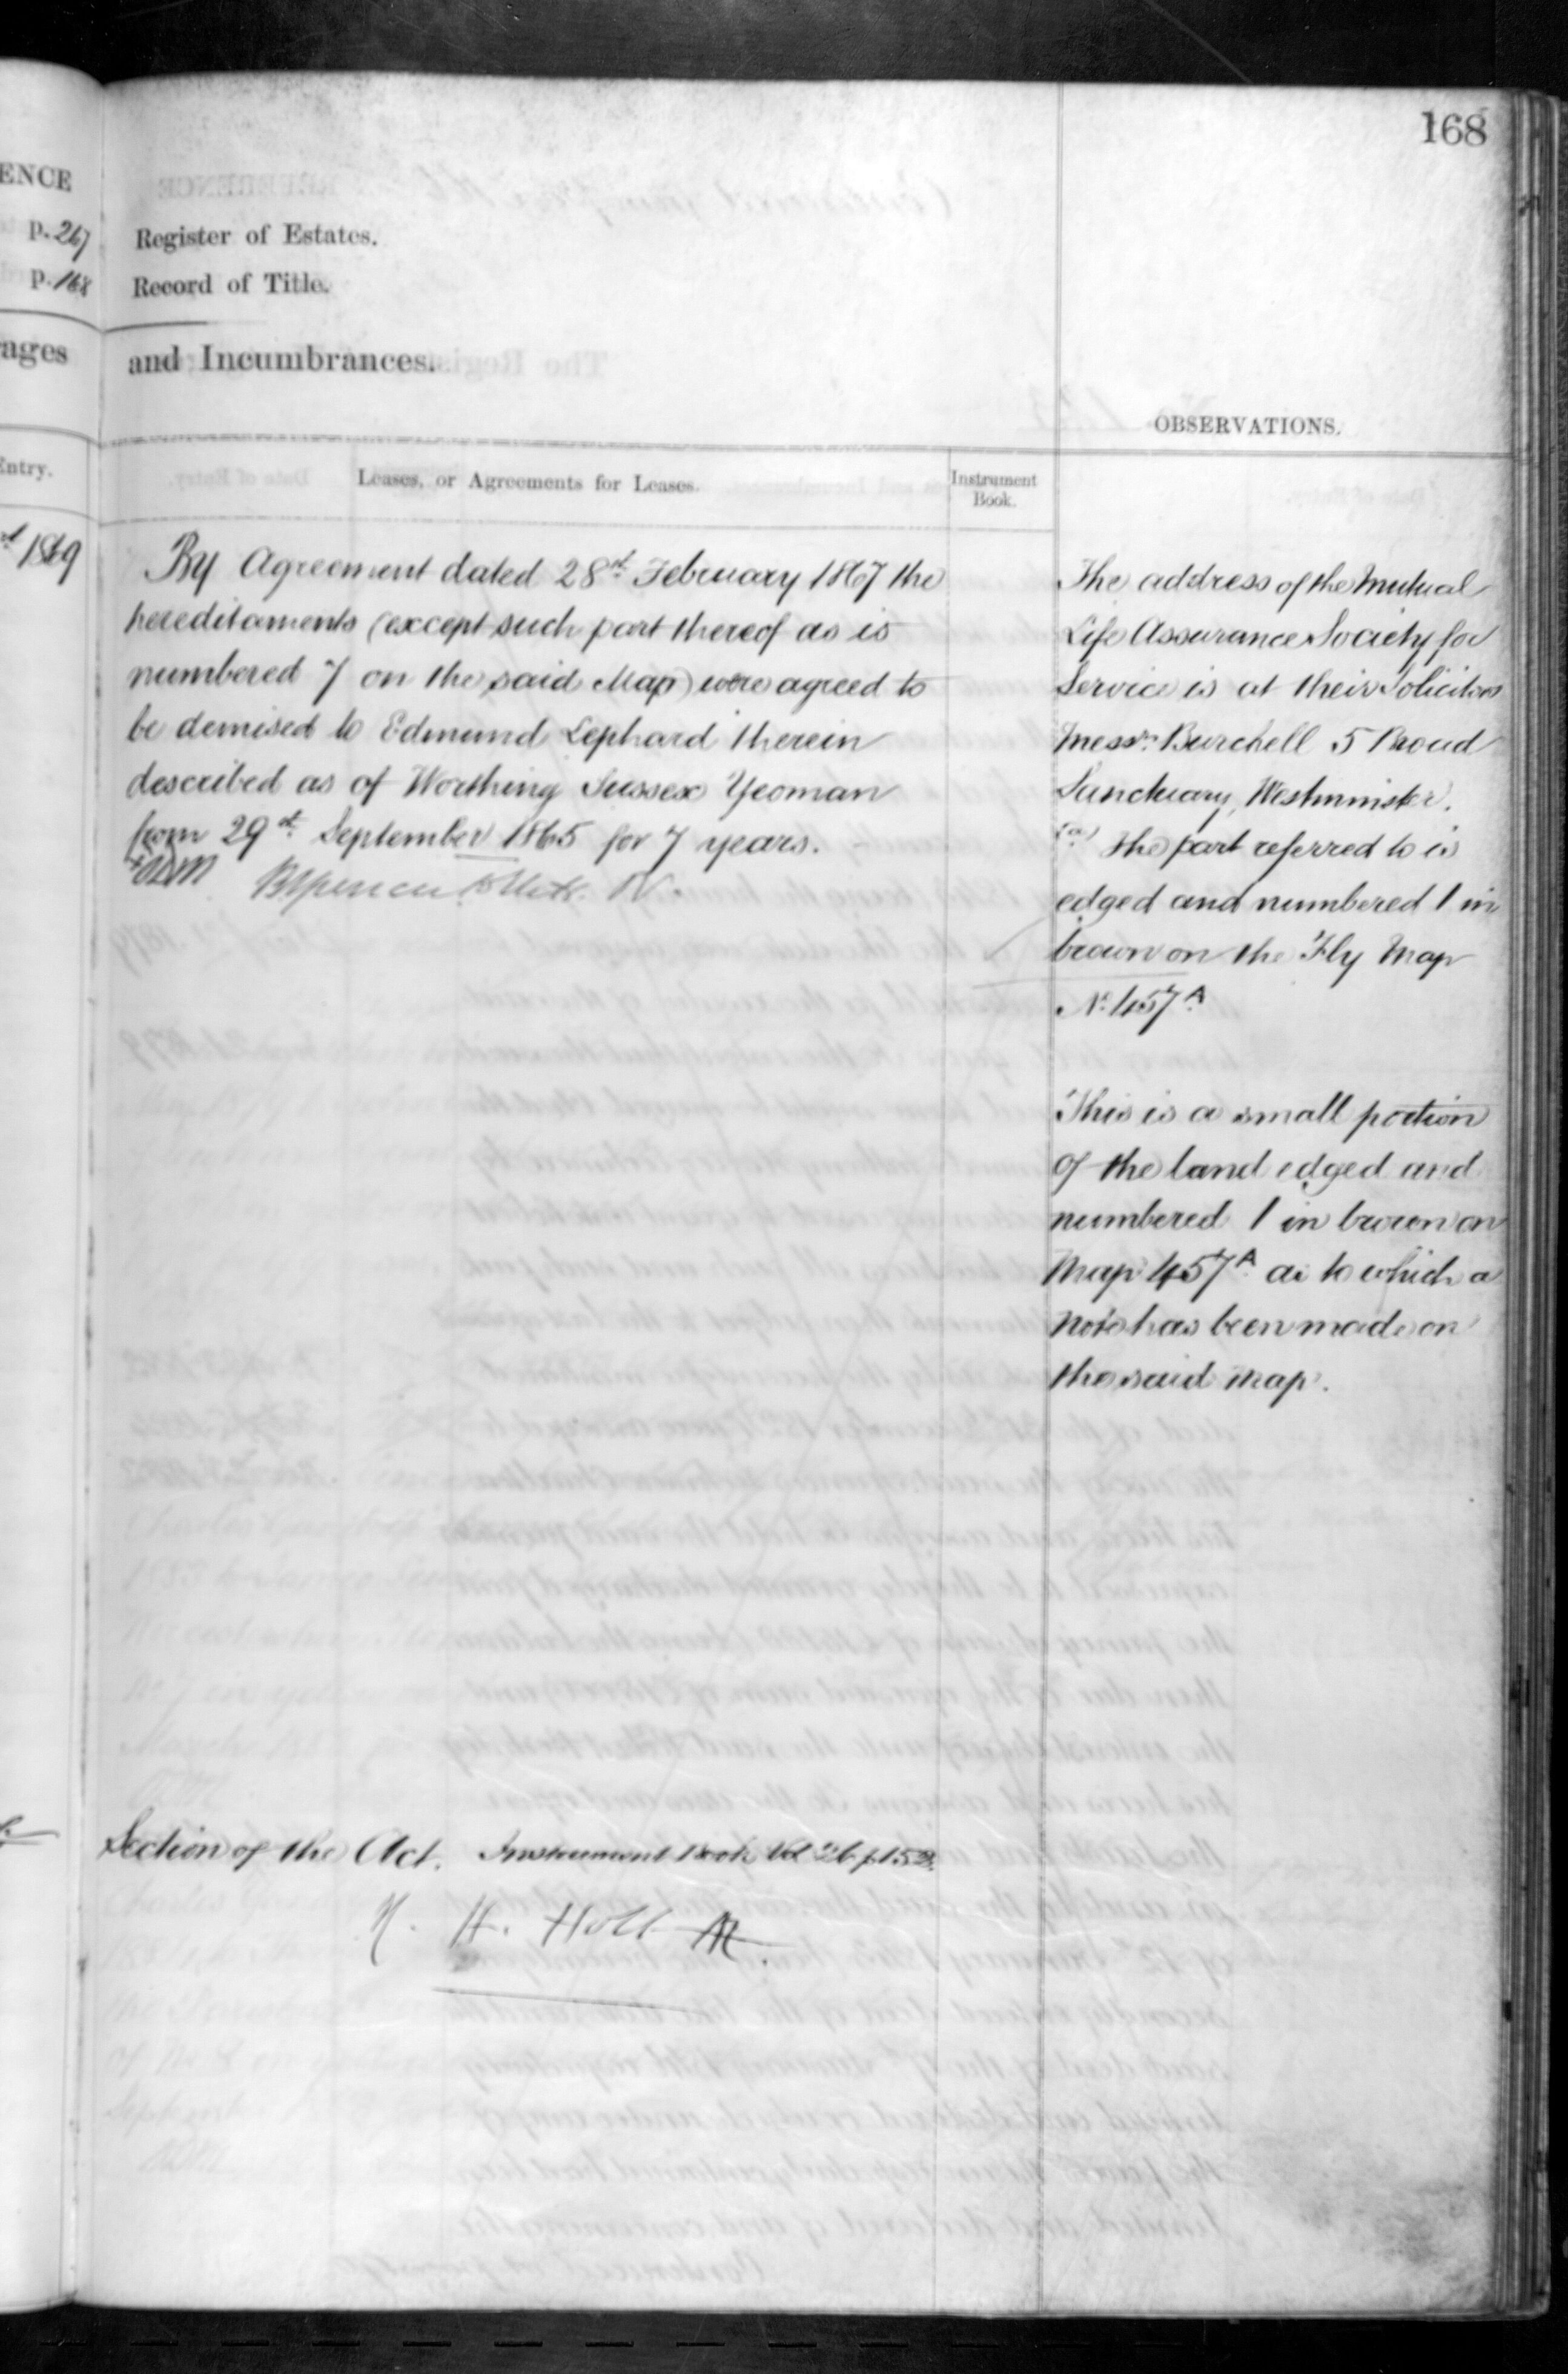 168
ENCE
p. 267
Register of Estates.
p. 168
Record of Title.
rages
and Incumbrances.
OBSERVATIONS.
Entry.
Leases, or Agreements for Leases.
Instrument
Book.
1869
By Agreement dated 28th February 1867 the
hereditaments (except such part thereof as is
numbered 7 on the said Map) were agreed to
be demised to Edmund Lephard therein
described as of Worthing Sussex Yeoman
from 29th September 1865 for 7 years.
The address of the Mutual
Life Assurance Society for
Service is at their Solicitors
Messrs Burchell 5 Broad
Sanctuary, Westminster.
(a) The part referred to is
edged and numbered 1 in
brown on the Fly Map
No. 457A
This is a small portion
of the land edged and
numbered 1 in brown on
Map 457A as to which a
note has been made on
the said map.
Section of the Act. Instrument Book Vol 26 p 152.
H. Holt